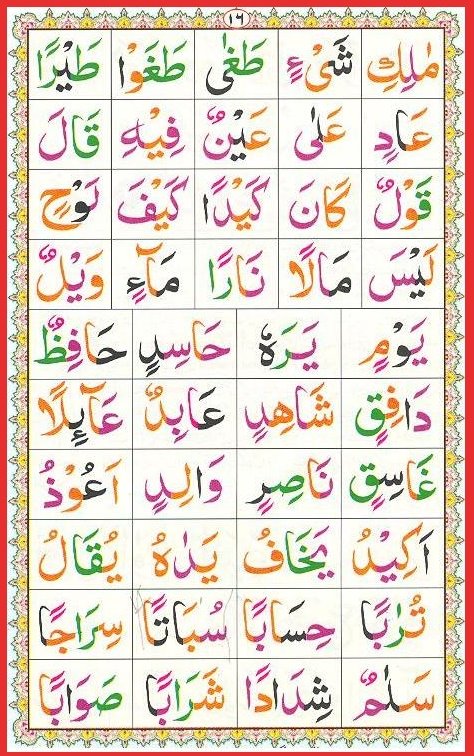 ١٦
مٰلِكِ شَىْءٍ طَغٰى طَغَوْا طَيْرًا
عَادٍ عَلٰى عَيْنٌ فِيْهِ قَالَ
قَوْلٌ كَانَ كَيْدًا كَيْفَ لَوْحٍ
لَيْسَ مَالًا نَارًا مَآءٍ وَيْلٌ
يَوْمٍ يَرَهٗ حَاسِدٍ حَافِظٌ
دَافِقٍ شَاهِدٍ عَابِدٌ عَآئِلًا
غَاسِقٍ نَاصِرٍ وَالِدٍ اَعُوْذُ
اَكِيْدُ يَخَافُ يَدٰهُ يُقَالُ
تُرٰبًا حِسَابًا سُبَاتًا سِرَاجًا
سَلٰمٌ شِدَادًا شَرَابًا صَوَابًا